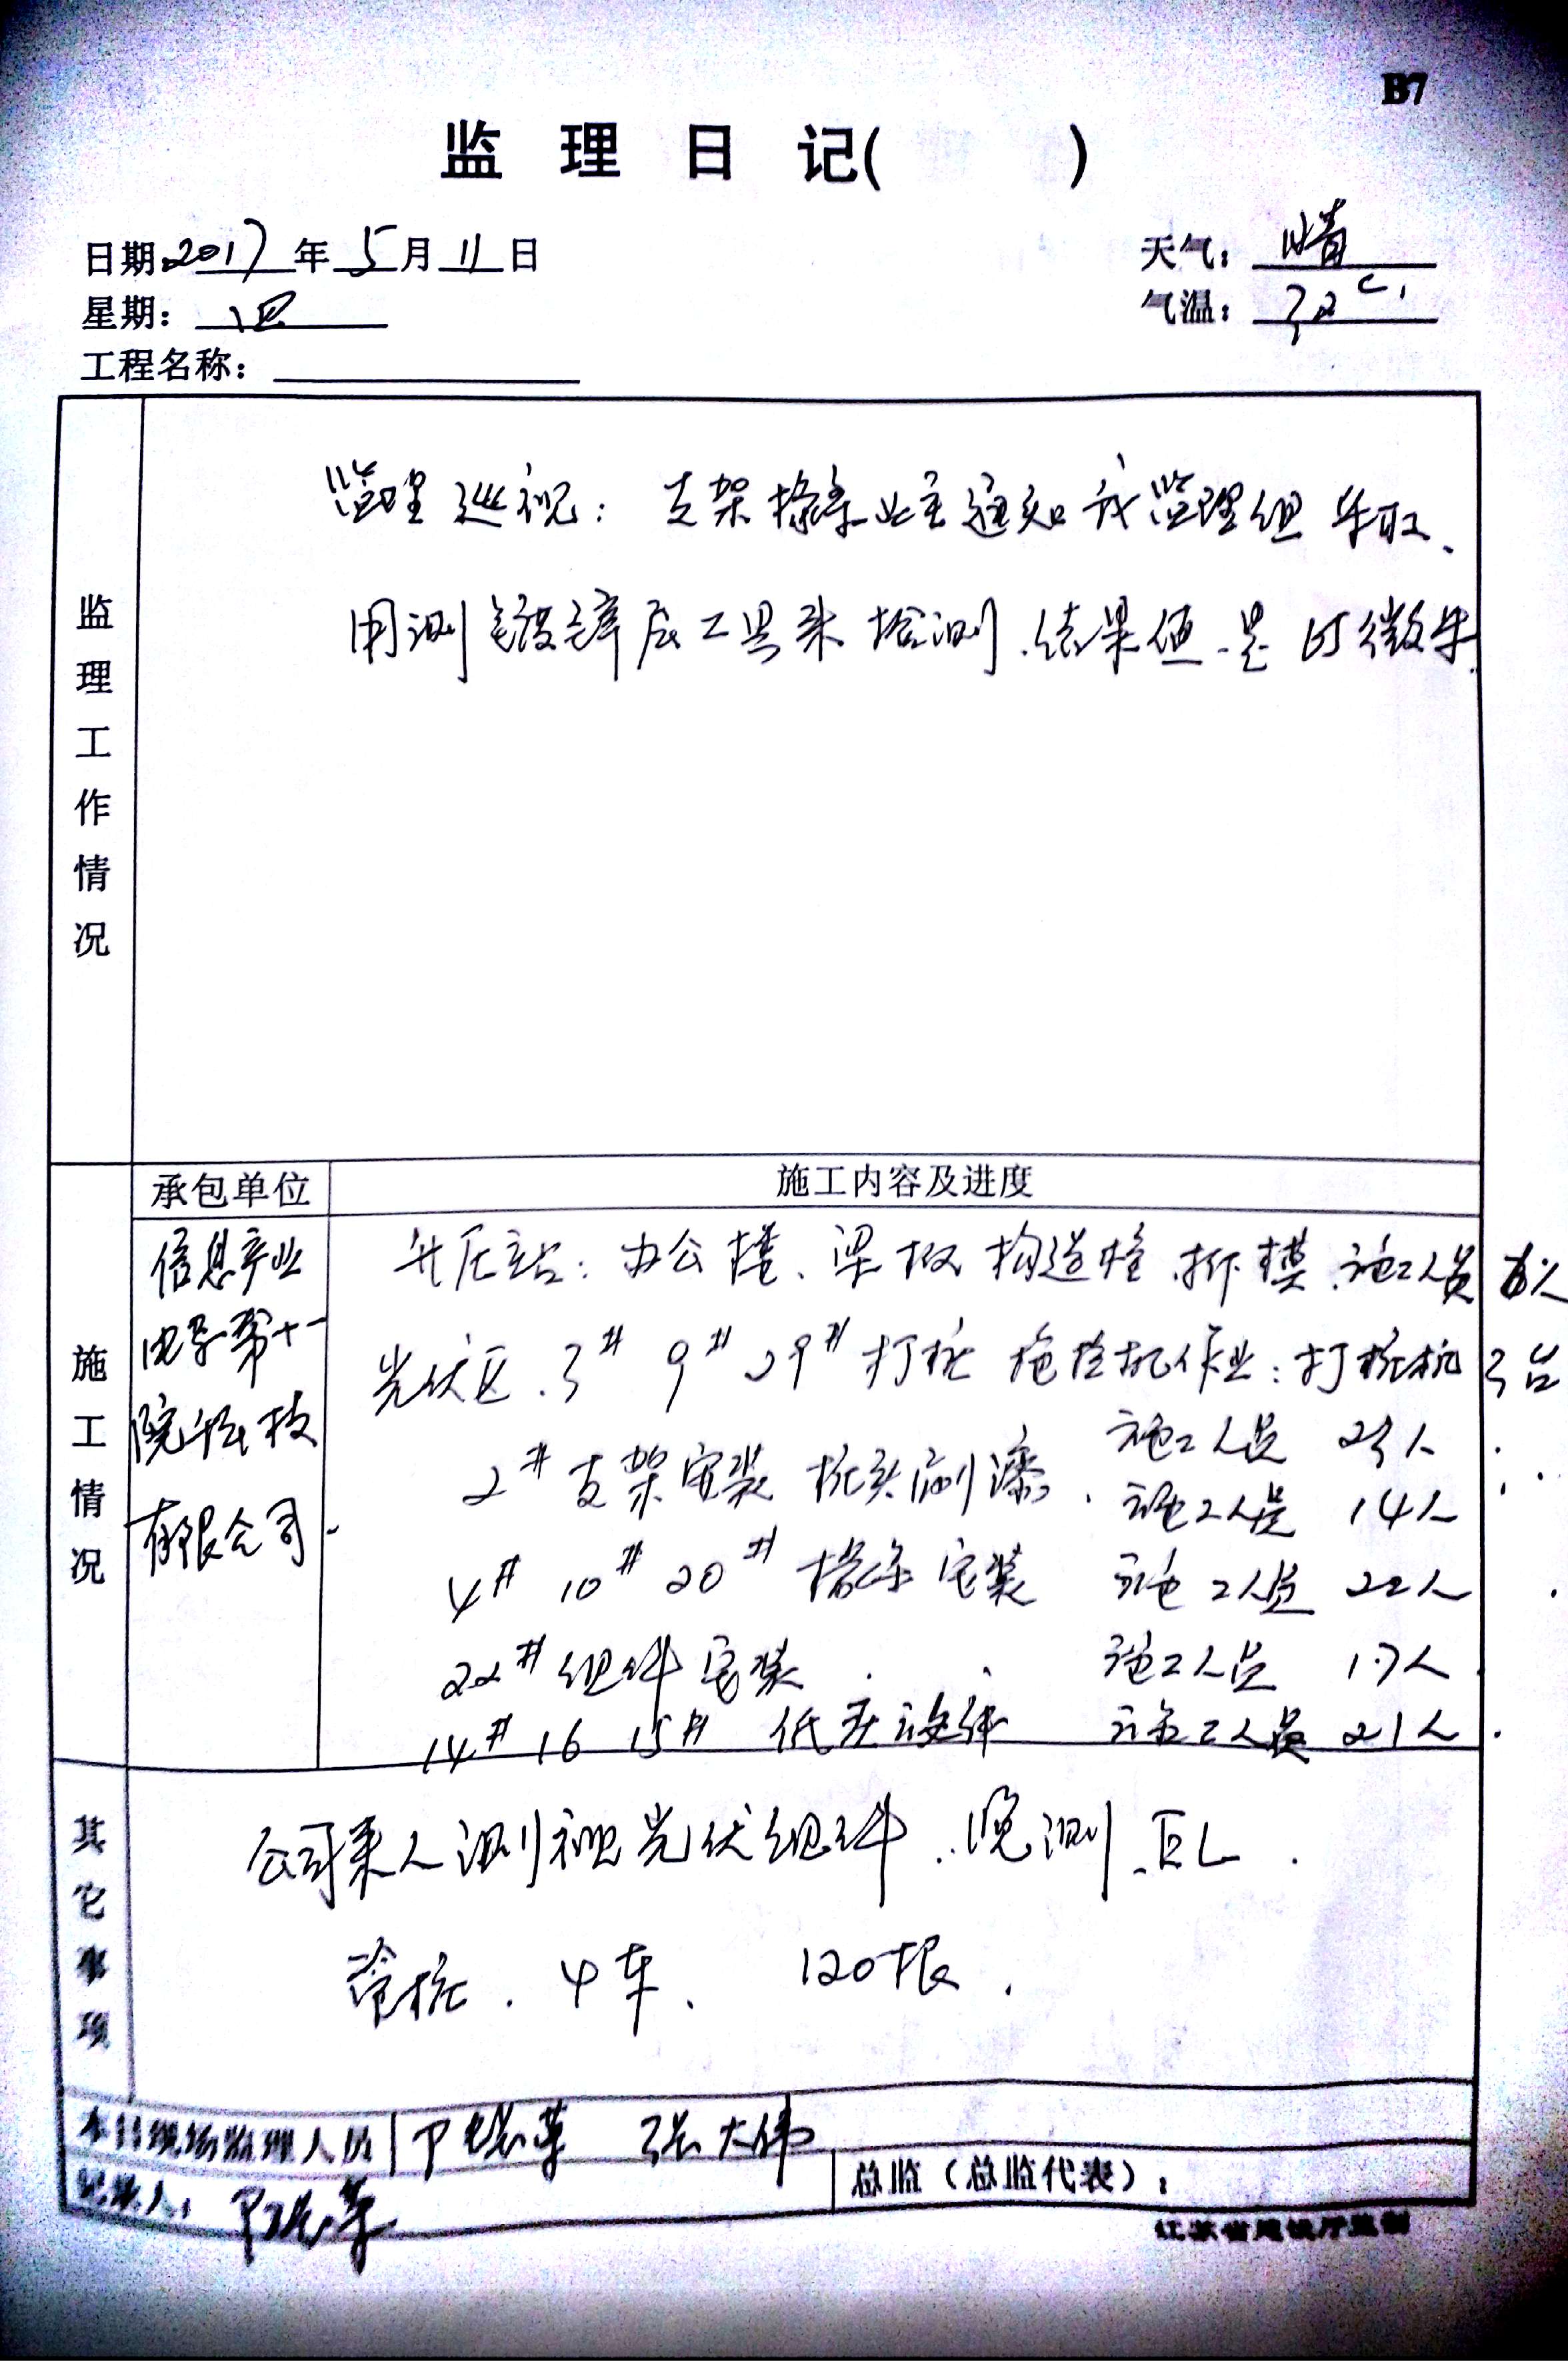 B7
监理日记( )
日期:2017年5月11日
天气:晴
星期:四
气温:32℃
工程名称:
监理工作情况
监理巡视:支架檩条业主通知我监理组
用测镀锌层工具来检测.结果值.是65微米.
承包单位
施工内容及进度
施工情况
信息产业
电子第十一
院科技
有限公司
升压站:办公楼、梁板构造柱.拆模.施工人员
光伏区.3# 9# 29#打桩 作业:打桩机3台
施工人员 23人
2#支架安装 桩头刷漆. 施工人员 14人
4# 10# 20#檩条安装 施工人员 22人
22#组件安装 施工人员 17人.
14# 16 15# 低压 施工人员 21人.
其它事项
公司来人测视光伏组件..晚测.EL.
管桩.4车. 120根.
本日现场监理人员 张大伟
记录人:
总监(总监代表):
江苏省建设厅监制